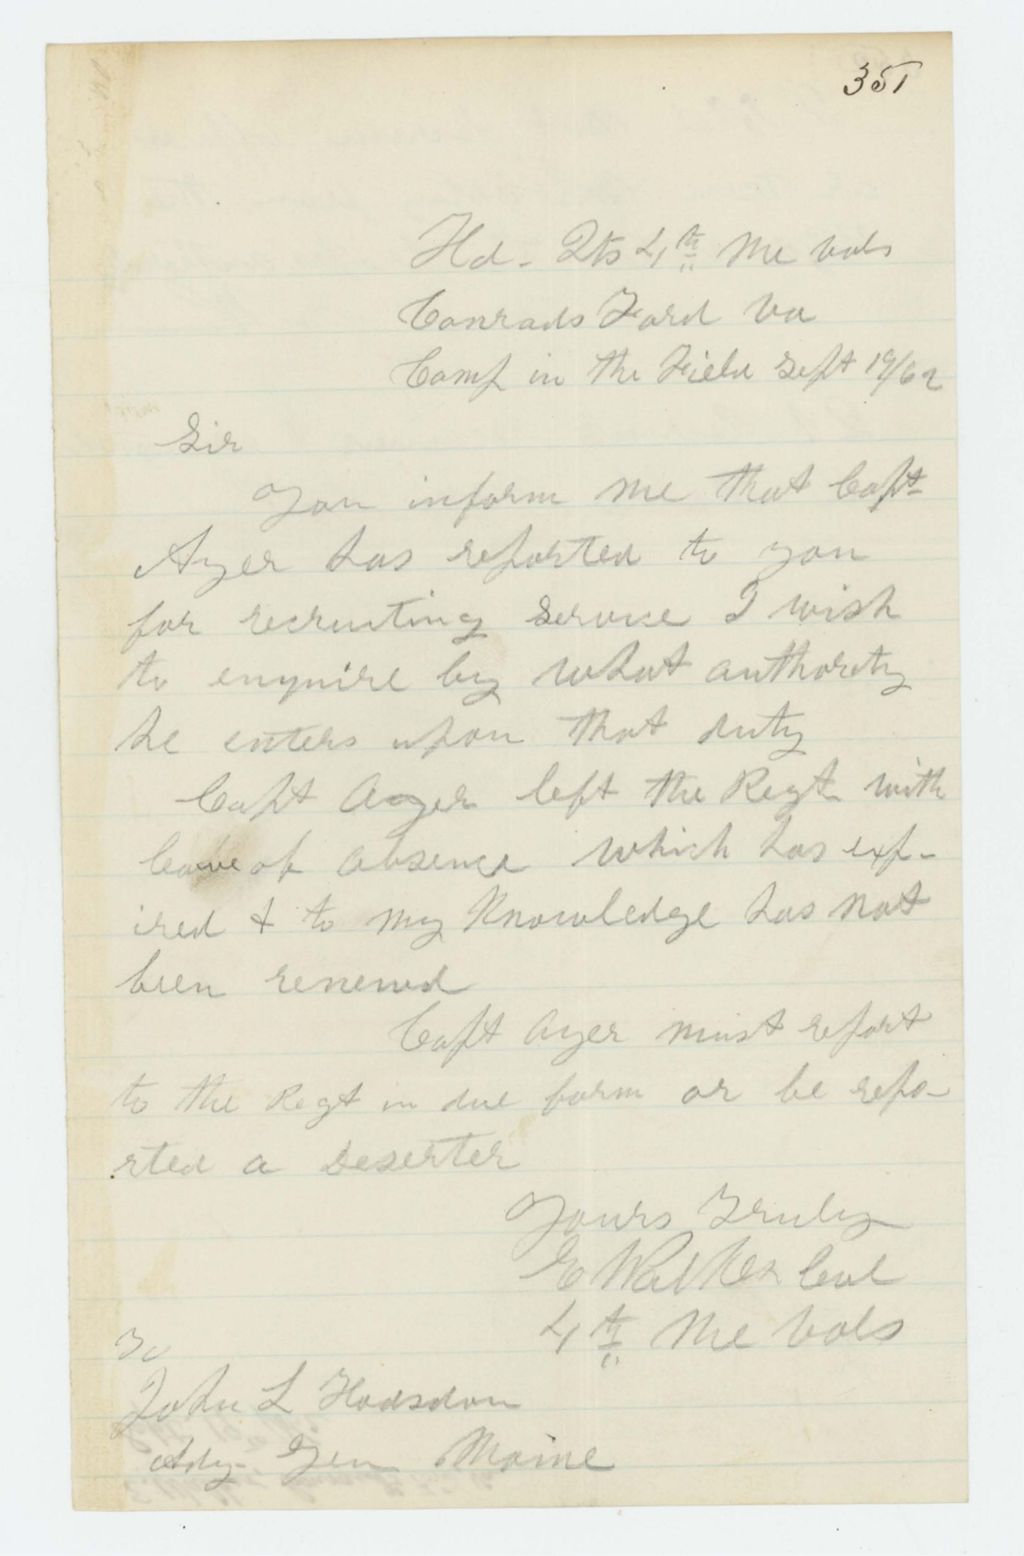 351
Hd - Qts 4th Me Vols
Conrads Ford Va
Camp in the Field Sept 19/62
Sir
You inform me that Capt
Ayer has reported to you
for recruiting Service I wish
to enquire by what authority
he enters upon that duty
Capt Ayer left the Regt with
leave of absence which has exp-
ired & to my Knowledge has not
been renewd
Capt Ayer must report
to the Regt in due form or be repo-
rted a Deserter
Yours Truly
E Walker Col
4th Me Vols
To
John L Hodsdon
Adg- Gen Maine